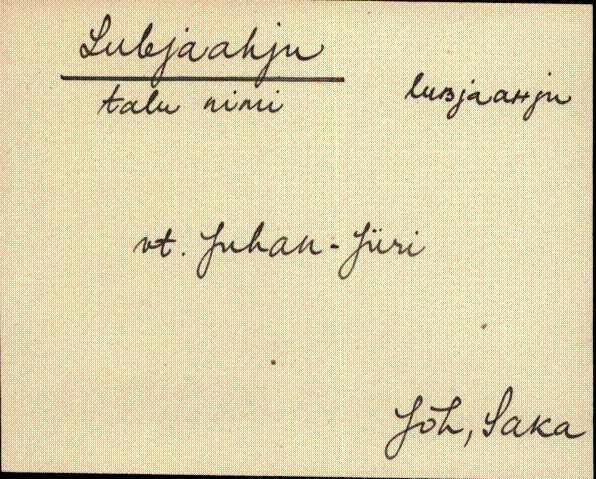 Lubjaahju
talu nimi
luʙjaahju
vt. Juhan-Jüri
Jõh, Saka